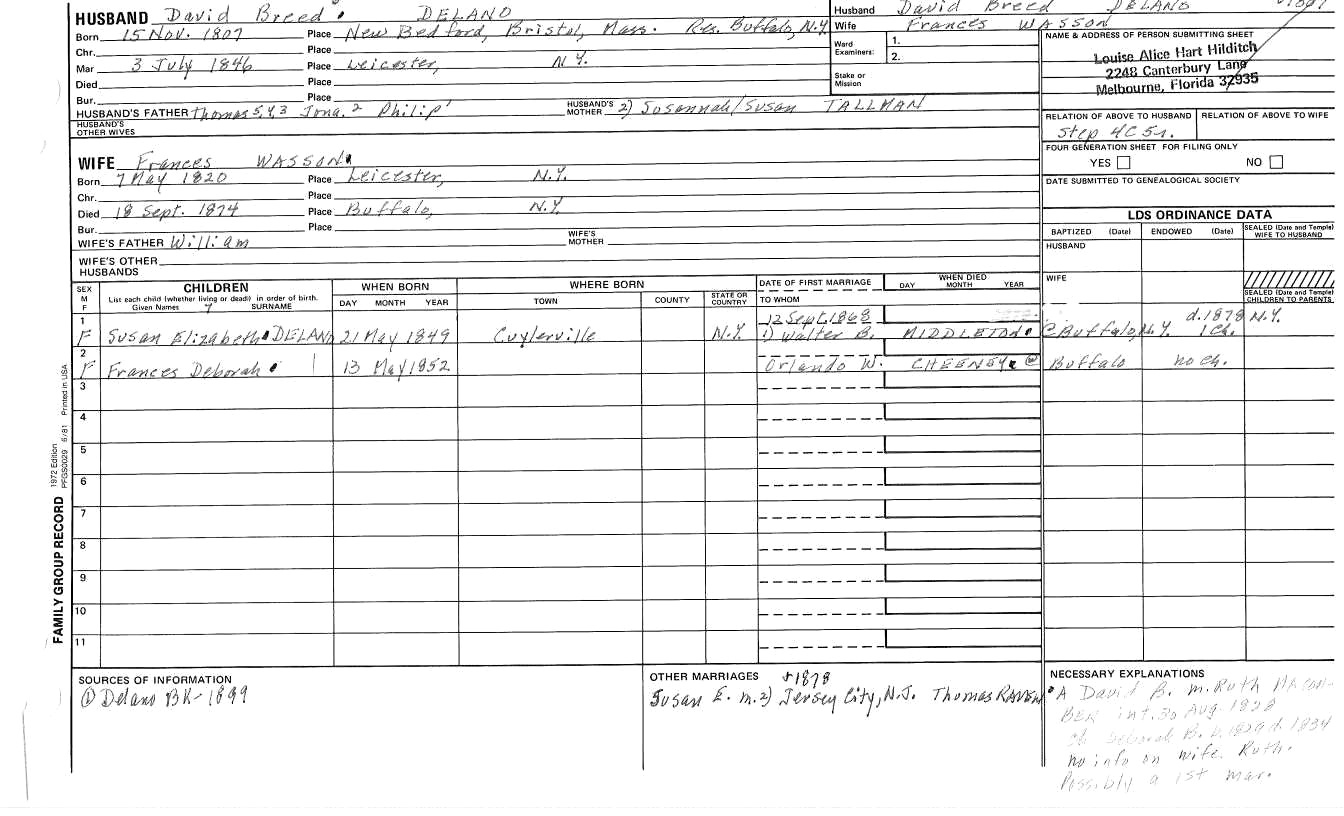 HUSBAND David Breed DELANO
Born 15 Nov. 1807 Place New Bedford, Bristol, Mass. Res. Buffalo, N.Y.
Chr. Place
Mar 3 July 1846 Place Leicester, N.Y.
Died Place
Bur. Place
HUSBAND'S FATHER Thomas 5,4,3 Jona.2 Philip1 HUSBAND'S MOTHER 2) Susannah/Susan TALLMAN
HUSBAND'S OTHER WIVES
Husband David Breed DELANO
Wife Frances WASSON
Ward Examiners: 1.
2.
Stake or Mission
NAME & ADDRESS OF PERSON SUBMITTING SHEET
Louise Alice Hart Hilditch
2248 Canterbury Lane
Melbourne, Florida 32935
RELATION OF ABOVE TO HUSBAND RELATION OF ABOVE TO WIFE
Step 4C5r.
FOUR GENERATION SHEET FOR FILING ONLY
YES NO
DATE SUBMITTED TO GENEALOGICAL SOCIETY
WIFE Frances WASSON
Born 7 May 1820 Place Leicester, N.Y.
Chr. Place
Died 18 Sept. 1874 Place Buffalo, N.Y.
Bur. Place
WIFE'S FATHER William WIFE'S MOTHER
WIFE'S OTHER HUSBANDS
LDS ORDINANCE DATA
BAPTIZED (Date) ENDOWED (Date) SEALED (Date and Temple) WIFE TO HUSBAND
HUSBAND
WIFE
SEALED (Date and Temple) CHILDREN TO PARENTS
SEX M F CHILDREN WHEN BORN WHERE BORN DATE OF FIRST MARRIAGE WHEN DIED
List each child (whether living or dead) in order of birth. DAY MONTH YEAR TOWN COUNTY STATE OR COUNTRY TO WHOM DAY MONTH YEAR
Given Names SURNAME
1 12 Sept. 1868 d.1878 N.Y.
F Susan Elizabeth DELANO 21 May 1849 Cuylerville N.Y. 1) Walter B. MIDDLETON @ Buffalo, N.Y. 1 Ch.
2
F Frances Deborah 13 May 1852 Orlando W. CHEENEY @ Buffalo no ch.
3
4
5
6
7
8
9
10
11
FAMILY GROUP RECORD 1972 Edition PFGS0029 6/81 Printed in USA
SOURCES OF INFORMATION
① Delano BK-1899
OTHER MARRIAGES +1878
Susan E. m. 2) Jersey City, N.J. Thomas RAVEN
NECESSARY EXPLANATIONS
A David B. m. Ruth
int. 30 Aug. 1828
Deborah B. d. 1834
no info on wife Ruth.
Possibly a 1st mar.